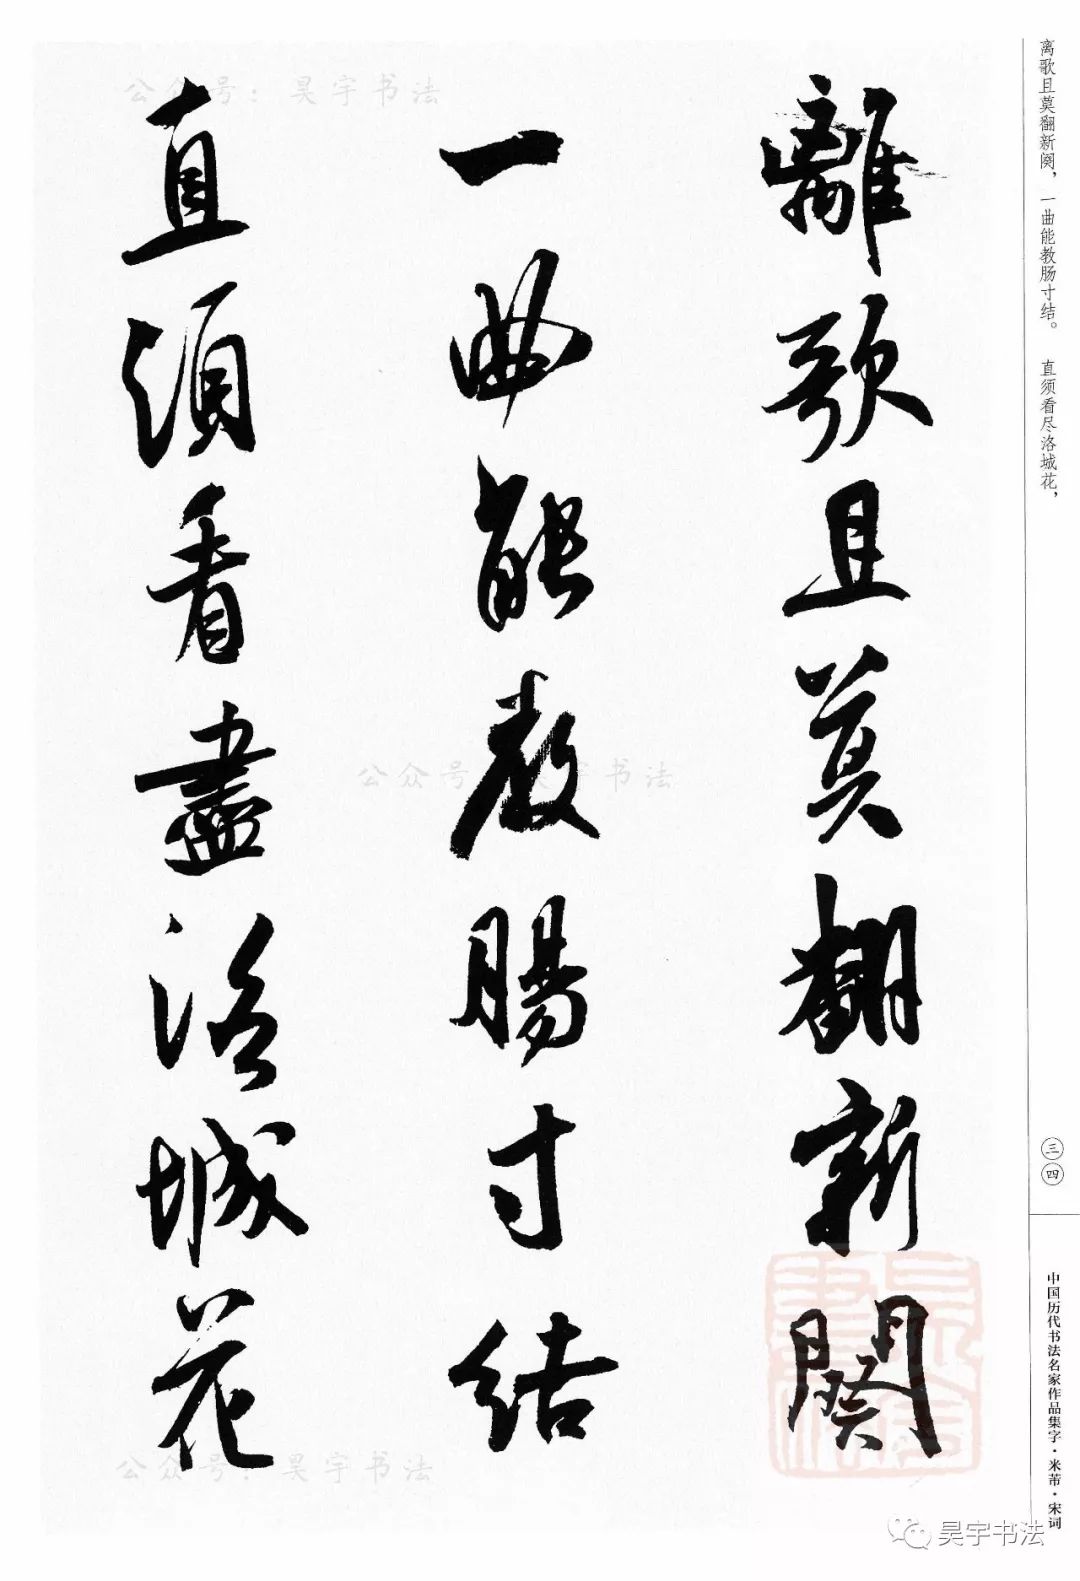 离歌且莫翻新阕，一曲能教肠寸结。　直须看尽洛城花，
離歌且莫翻新闋
一曲能教腸寸結
直須看盡洛城花
三四
中国历代书法名家作品集字·米芾·宋词
公众号：昊宇书法
公众号：昊宇书法
公众号：昊宇书法
昊宇书法